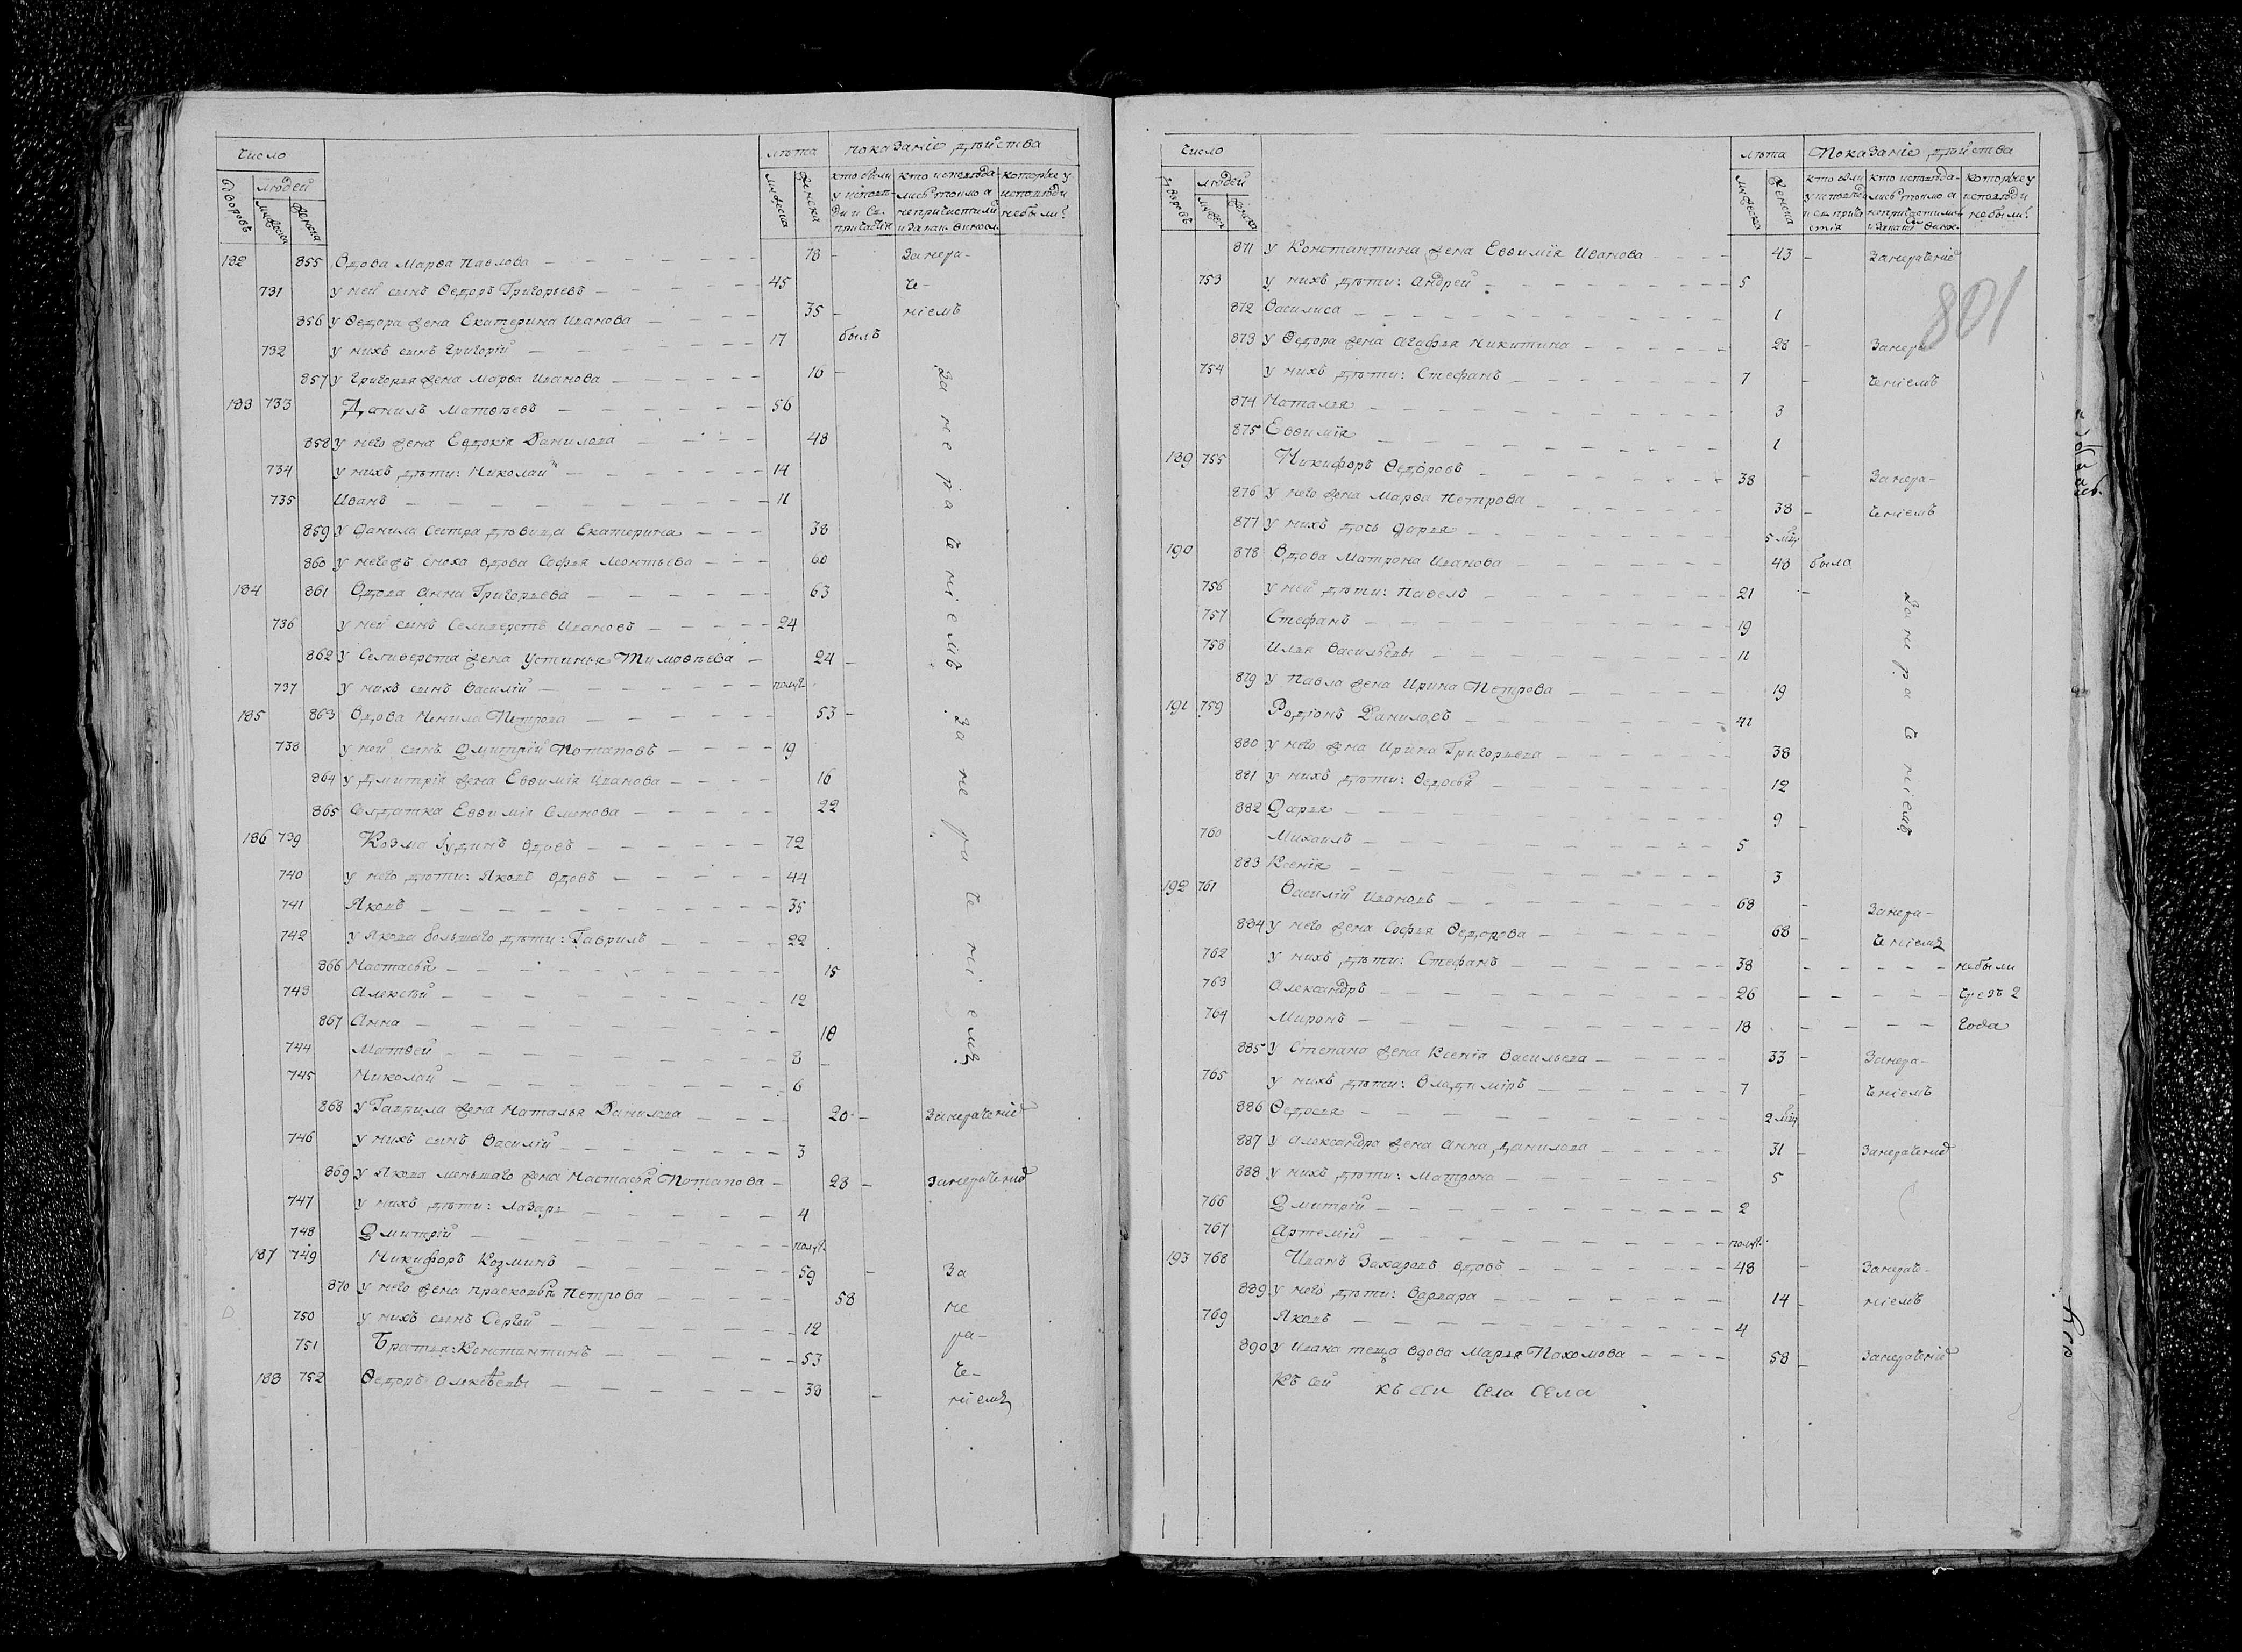 число
лѣта показаніе дѣйства
дворовъ людей мужеска женска
мужеска женска
кто были у исповѣди и Св. причастія
кто исповѣдались токмо а непричастились и за как. винов.
которые у исповѣди небыли
182 855 Вдова Марѳа Павлова 78 Занера-
731 у ней сынъ Ѳедоръ Григорьевъ 45 че-
856 у Ѳедора жена Екатерина Иванова 35 ніемъ
732 у нихъ сынъ Григорій 17 былъ
857 у Григорья жена Марѳа Иванова 18
183 733 Данилъ Матвѣевъ 56
858 у него жена Евдокія Данилова 48
734 у нихъ дѣти: Николай 14
735 Иванъ 11
859 у Данила сестра дѣвица Екатерина 38
860 у негожъ сноха вдова Софья Леонтьева 60
184 861 Вдова Анна Григорьева 63
736 у ней сынъ Селиверстъ Ивановъ 24
862 у Селиверста жена Устинья Тимоѳѣева 24
737 у нихъ сынъ Василій полуг.
185 863 Вдова Ненила Петрова 53
738 у ней сынъ Дмитрій Потаповъ 19
864 у Дмитрія жена Евѳимія Иванова 16
865 Солдатка Евѳимія Семенова 22
186 739 Козма Іудинъ вдовъ 72
740 у него дѣти: Яковъ вдовъ 44
741 Яковъ 35
742 у Якова большаго дѣти: Гаврилъ 22
866 Настасья 15
743 Алексѣй 12
867 Анна 10
744 Матвей 8
745 Николай 6
868 у Гаврила жена Наталья Данилова 20 Занераченіе
746 у нихъ сынъ Василій 3
869 у Якова меньшаго жена Настасья Потапова 28 Занераченіе
747 у нихъ дѣти: Лазарь 4
748 Дмитрій полуг.
187 749 Никифоръ Козминъ 59 За
870 у него жена Прасковья Петрова 58 не
750 у нихъ сынъ Сергей 12 ра-
751 Братья: Константинъ 53 че-
188 752 Ѳедоръ Алексѣевы 38 ніемъ
За не ра че ніемъ
За не ра че ні емъ
801
число
лѣта Показаніе дѣйства
дворовъ людей мужеска женска
мужеска женска
кто были у исповѣди и св. причастія
кто исповѣдались токмо а непричастились и за как. винов.
которые у исповѣди небыли
871 у Константина жена Евѳимія Иванова 43 Занераченіе
753 у нихъ дѣти: Андрей 5
872 Василиса 1
873 у Ѳедора жена Агафья Никитина 28 Занера-
754 у нихъ дѣти: Стефанъ 7 ченіемъ
874 Наталья 3
875 Евѳимія 1
189 755 Никифоръ Ѳедоровъ 38 Занера-
876 у него жена Марѳа Петрова 38 ченіемъ
877 у нихъ дочь Дарья 5 мѣц
190 878 Вдова Матрона Иванова 48 была
756 у ней дѣти: Павелъ 21
757 Стефанъ 19
758 Илья Васильевы 11
879 у Павла жена Ирина Петрова 19
191 759 Родіонъ Даниловъ 41
880 у него жена Ирина Григорьева 38
881 у нихъ дѣти: Ѳедосья 12
882 Дарья 9
760 Михаилъ 5
883 Ксенія 3
192 761 Василій Ивановъ 68 Занера-
884 у него жена Софья Ѳедорова 68 ченіемъ
762 у нихъ дѣти: Стефанъ 38 небыли
763 Александръ 26 чрезъ 2
764 Миронъ 18 года
885 у Степана жена Ксенія Васильева 33 Занера-
765 у нихъ дѣти: Владиміръ 7 ченіемъ
886 Ѳедосья 2 мѣц
887 у Александра жена Анна Данилова 31 Занераченіе
888 у нихъ дѣти: Матрона 5
766 Дмитрій 2
767 Артемій полуг.
193 768 Иванъ Захаровъ вдовъ 48 Занераче-
889 у него дѣти: Варвара 14 ніемъ
769 Яковъ 4
890 у Ивана теща вдова Марья Пахомова 58 Занераченіе
За не ра че ніемъ
Къ сей къ сеи села села